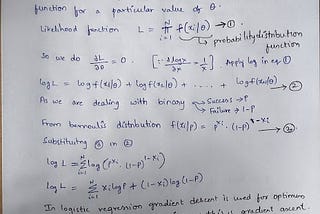 function for a particular value of θ.
Likelihood function L = N ∏ i=1 f(xi|θ) → ①
↳ probability distribution function
So we do ∂L/∂θ = 0. [∵ ∂logx/∂x = 1/x]. Apply log in eq ①
logL = logf(x1|θ) + logf(x2|θ) + .... + logf(xn|θ) → ②
As we are dealing with binary → Success → P
→ Failure → 1-P
From bernoulis distribution f(xi|P) = P^xi . (1-P)^1-xi → ③
Substituting ③ in ②
log L = N ∑ i=1 log(P^xi . (1-P)^1-xi)
log L = N ∑ i=1 xi logP + (1-xi) log(1-P)
In logistic regression gradient descent is used for optimum
gradient ascent.